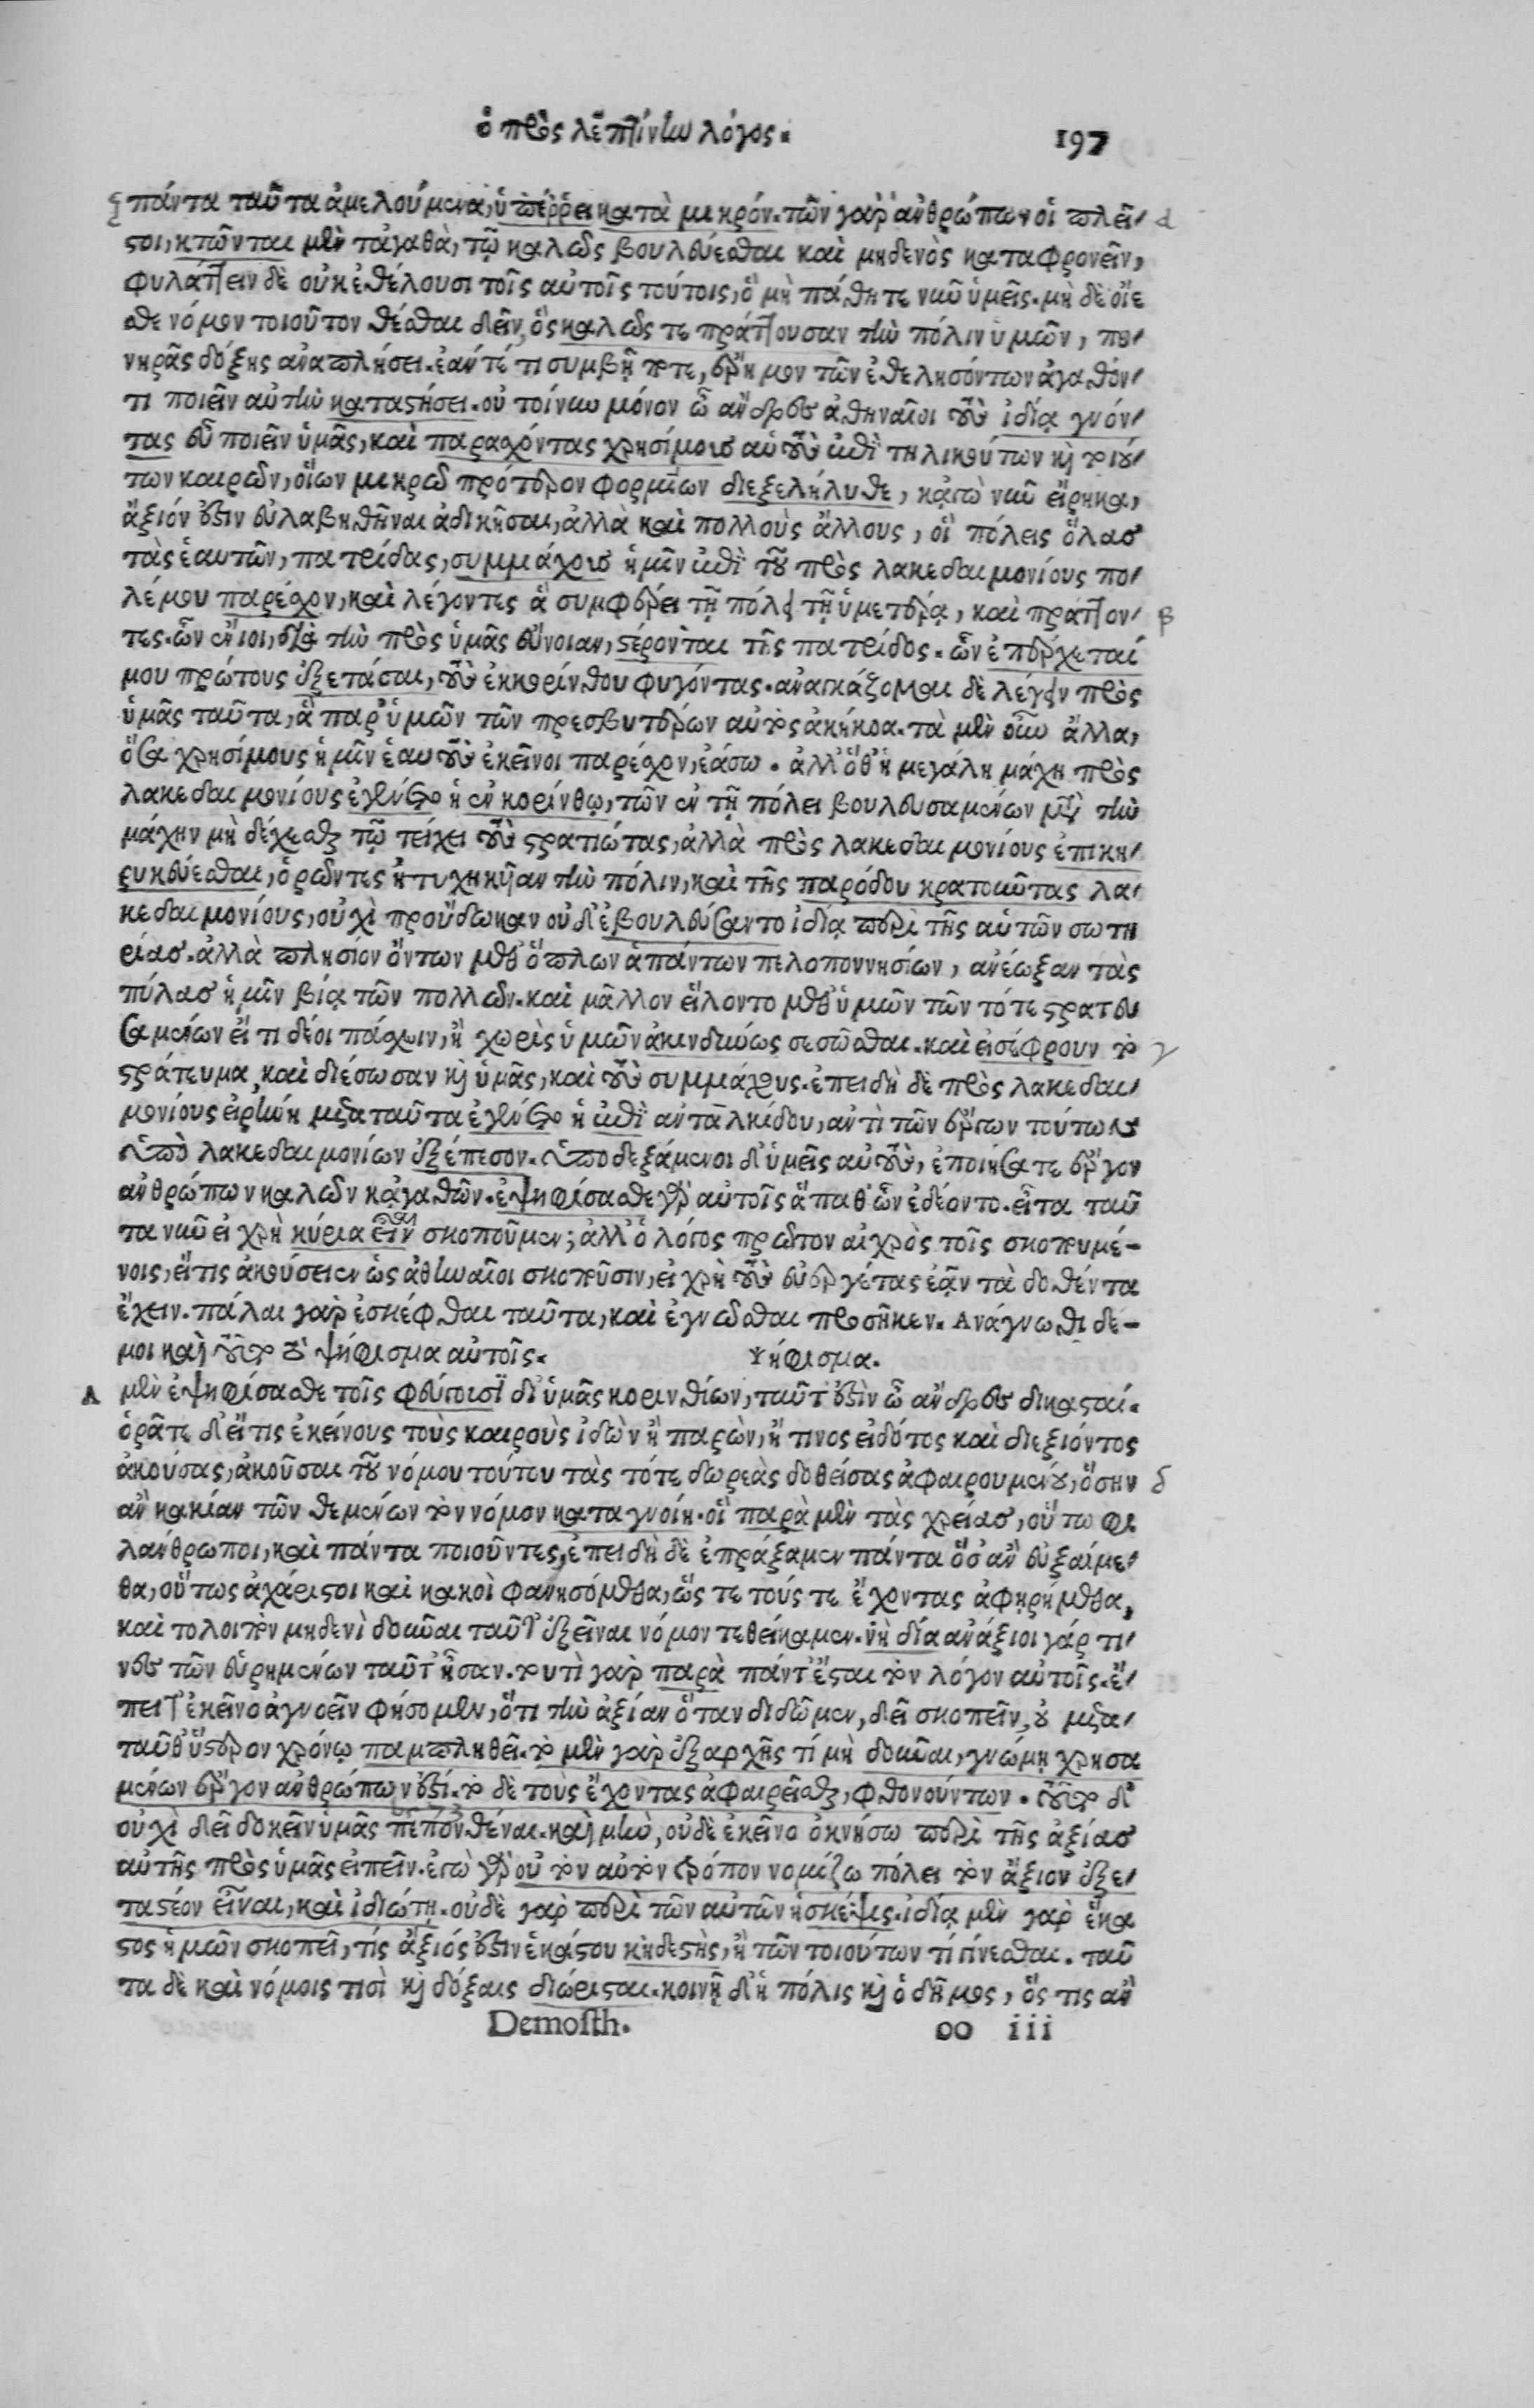 ὁ πρὸς λεπτίνην λόγος. 197
πάντα ταῦτα ἀμελούμενα, ὑπέρρει κατὰ μικρόν. τῶν γὰρ ἀνθρώπων οἱ πλεῖ- α
στοι, κτῶνται μὲν τἀγαθὰ, τῷ καλῶς βουλεύεσθαι καὶ μηδενὸς καταφρονεῖν,
φυλάττειν δὲ οὐκ ἐθέλουσι τοῖς αὐτοῖς τούτοις, ὃ μὴ πάθητε νῦν ὑμεῖς. μὴ δὲ οἴε
σθε νόμον τοιοῦτον θέσθαι δεῖν, ὃς καλῶς τε πράττουσαν τὴν πόλιν ὑμῶν, πο-
νηρᾶς δόξης ἀναπλήσει. ἐάν τέ τι συμβῇ ποτε, ἔρημον τῶν ἐθελησόντων ἀγαθόν-
τι ποιεῖν αὐτὴν καταστήσει. οὐ τοίνυν μόνον ὦ ἄνδρες ἀθηναῖοι τοὺς ἰδίᾳ γνόν-
τας εὖ ποιεῖν ὑμᾶς, καὶ παρασχόντας χρησίμους αὑτοὺς ἐπὶ τηλικούτων καὶ τοιού-
των καιρῶν, οἵων μικρῷ πρότερον φορμίων διεξελήλυθε, κἀγὼ νῦν εἴρηκα,
ἄξιόν ἐστιν εὐλαβηθῆναι ἀδικῆσαι, ἀλλὰ καὶ πολλοὺς ἄλλους, οἳ πόλεις ὅλας
τὰς ἑαυτῶν, πατρίδας, συμμάχους ἡμῖν ἐπὶ τοῦ πρὸς λακεδαιμονίους πο-
λέμου παρέσχον, καὶ λέγοντες ἃ συμφέρει τῇ πόλει τῇ ὑμετέρᾳ, καὶ πράττον- β
τες. ὧν ἔνιοι, διὰ τὴν πρὸς ὑμᾶς εὔνοιαν, στέρονται τῆς πατρίδος. ὧν ἐπέρχεταί
μου πρώτους ἐξετάσαι, τοὺς ἐκ κορίνθου φυγόντας. ἀναγκάζομαι δὲ λέγειν πρὸς
ὑμᾶς ταῦτα, ἃ παρ' ὑμῶν τῶν πρεσβυτέρων αὐτὸς ἀκήκοα. τὰ μὲν οὖν ἄλλα,
ὅσα χρησίμους ἡμῖν ἑαυτοὺς ἐκεῖνοι παρέσχον, ἐάσω. ἀλλ' ὅθ' ἡ μεγάλη μάχη πρὸς
λακεδαιμονίους ἐγένετο ἡ ἐν κορίνθῳ, τῶν ἐν τῇ πόλει βουλευσαμένων μετὰ τὴν
μάχην μὴ δέχεσθαι τῷ τείχει τοὺς στρατιώτας, ἀλλὰ πρὸς λακεδαιμονίους ἐπικη-
ρυκεύεσθαι, ὁρῶντες ἠτυχηκῆαν τὴν πόλιν, καὶ τῆς παρόδου κρατοῦντας λα-
κεδαιμονίους, οὐχὶ προὔδωκαν οὐδ' ἐβουλεύσαντο ἰδίᾳ περὶ τῆς αὑτῶν σωτη
ρίας. ἀλλὰ πλησίον ὄντων μεθ' ὅπλων ἁπάντων πελοποννησίων, ἀνέωξαν τὰς
πύλας ἡμῖν βίᾳ τῶν πολλῶν. καὶ μᾶλλον εἵλοντο μεθ' ὑμῶν τῶν τότε στρατευ
σαμένων εἴ τι δέοι πάσχειν, ἢ χωρὶς ὑμῶν ἀκινδύνως σεσῶσθαι. καὶ εἰσέφρουν τὸ γ
στράτευμα, καὶ διέσωσαν καὶ ὑμᾶς, καὶ τοὺς συμμάχους. ἐπειδὴ δὲ πρὸς λακεδαι-
μονίους εἰρήνη μετὰ ταῦτα ἐγένετο ἡ ἐπὶ ἀνταλκίδου, ἀντὶ τῶν ἔργων τούτων
ὑπὸ λακεδαιμονίων ἐξέπεσον. ὑποδεξάμενοι δ' ὑμεῖς αὐτοὺς, ἐποιήσατε ἔργον
ἀνθρώπων καλῶν κἀγαθῶν. ἐψηφίσασθε γὰρ αὐτοῖς ἅπαθ' ὧν ἐδέοντο. εἶτα ταῦ
τα νῦν εἰ χρὴ κύρια εἶν σκοποῦμεν; ἀλλ' ὁ λόγος πρῶτον αἰχρὸς τοῖς σκοπουμέ-
νοις, εἴ τις ἀκούσειεν ὡς ἀθηναῖοι σκοποῦσιν, εἰ χρὴ τοὺς εὐεργέτας ἐᾷν τὰ δοθέντα
ἔχειν. πάλαι γὰρ ἐσκέφθαι ταῦτα, καὶ ἐγνῶσθαι προσῆκεν. Ἀνάγνωθι δέ-
μοι καὶ τοῦτο τὸ ψήφισμα αὐτοῖς. Ψήφισμα.
Ἃ μὲν ἐψηφίσασθε τοῖς φεύγουσι δι' ὑμᾶς κορινθίων, ταῦτ' ἐστὶν ὦ ἄνδρες δικασταί.
ὁρᾶτε δ' εἴ τις ἐκείνους τοὺς καιροὺς ἰδὼν ἢ παρὼν, ἤ τινος εἰδότος καὶ διεξιόντος
ἀκούσας, ἀκοῦσαι τοῦ νόμου τούτου τὰς τότε δωρεὰς δοθείσας ἀφαιρουμένου, ὅσην δ
ἂν κακίαν τῶν θεμένων τὸν νόμον καταγνοίη. οἳ παρὰ μὲν τὰς χρείας, οὕτω φι
λάνθρωποι, καὶ πάντα ποιοῦντες, ἐπειδὴ δὲ ἐπράξαμεν πάντα ὅσ' ἂν εὐξαίμε-
θα, οὕτως ἀχάριστοι καὶ κακοὶ φανησόμεθα, ὥς τε τούς τε ἔχοντας ἀφῃρήμεθα,
καὶ τολοιπὸν μηδενὶ δοῦναι ταῦτ' ἐξεῖναι νόμον τεθείκαμεν. νὴ δία ἀνάξιοι γάρ τι-
νες τῶν εὑρημένων ταῦτ' ἦσαν. τουτὶ γὰρ παρὰ πάντ' ἔσται τὸν λόγον αὐτοῖς. ἔ-
πειτ' ἐκεῖνο ἀγνοεῖν φήσομεν, ὅτι τὴν ἀξίαν ὅταν διδῶμεν, δεῖ σκοπεῖν, οὐ μετα-
ταῦθ' ὕστερον χρόνῳ παμπληθεῖ. τὸ μὲν γὰρ ἐξαρχῆς τί μὴ δοῦναι, γνώμῃ χρησα
μένων ἔργον ἀνθρώπων ἐστί. τὸ δὲ τοὺς ἔχοντας ἀφαιρεῖσθαι, φθονούντων. τοῦτο δ'
οὐχὶ δεῖ δοκεῖν ὑμᾶς πεπονθέναι. καὶ μὴν, οὐδὲ ἐκεῖνο ὀκνήσω περὶ τῆς ἀξίας
αὐτῆς πρὸς ὑμᾶς εἰπεῖν. ἐγὼ γὰρ οὐ τὸν αὐτὸν τρόπον νομίζω πόλει τὸν ἄξιον ἐξε-
ταστέον εἶναι, καὶ ἰδιώτῃ. οὐδὲ γὰρ περὶ τῶν αὐτῶν ἡ σκέψις. ἰδίᾳ μὲν γὰρ ἕκα
στος ἡμῶν σκοπεῖ, τίς ἄξιός ἐστιν ἑκάστου κηδεστὴς, ἢ τῶν τοιούτων τί γίνεσθαι. ταῦ
τα δὲ καὶ νόμοις τισὶ καὶ δόξαις διώρισται. κοινῇ δ' ἡ πόλις καὶ ὁ δῆμος, ὅς τις ἂν
Demosth. oo iii